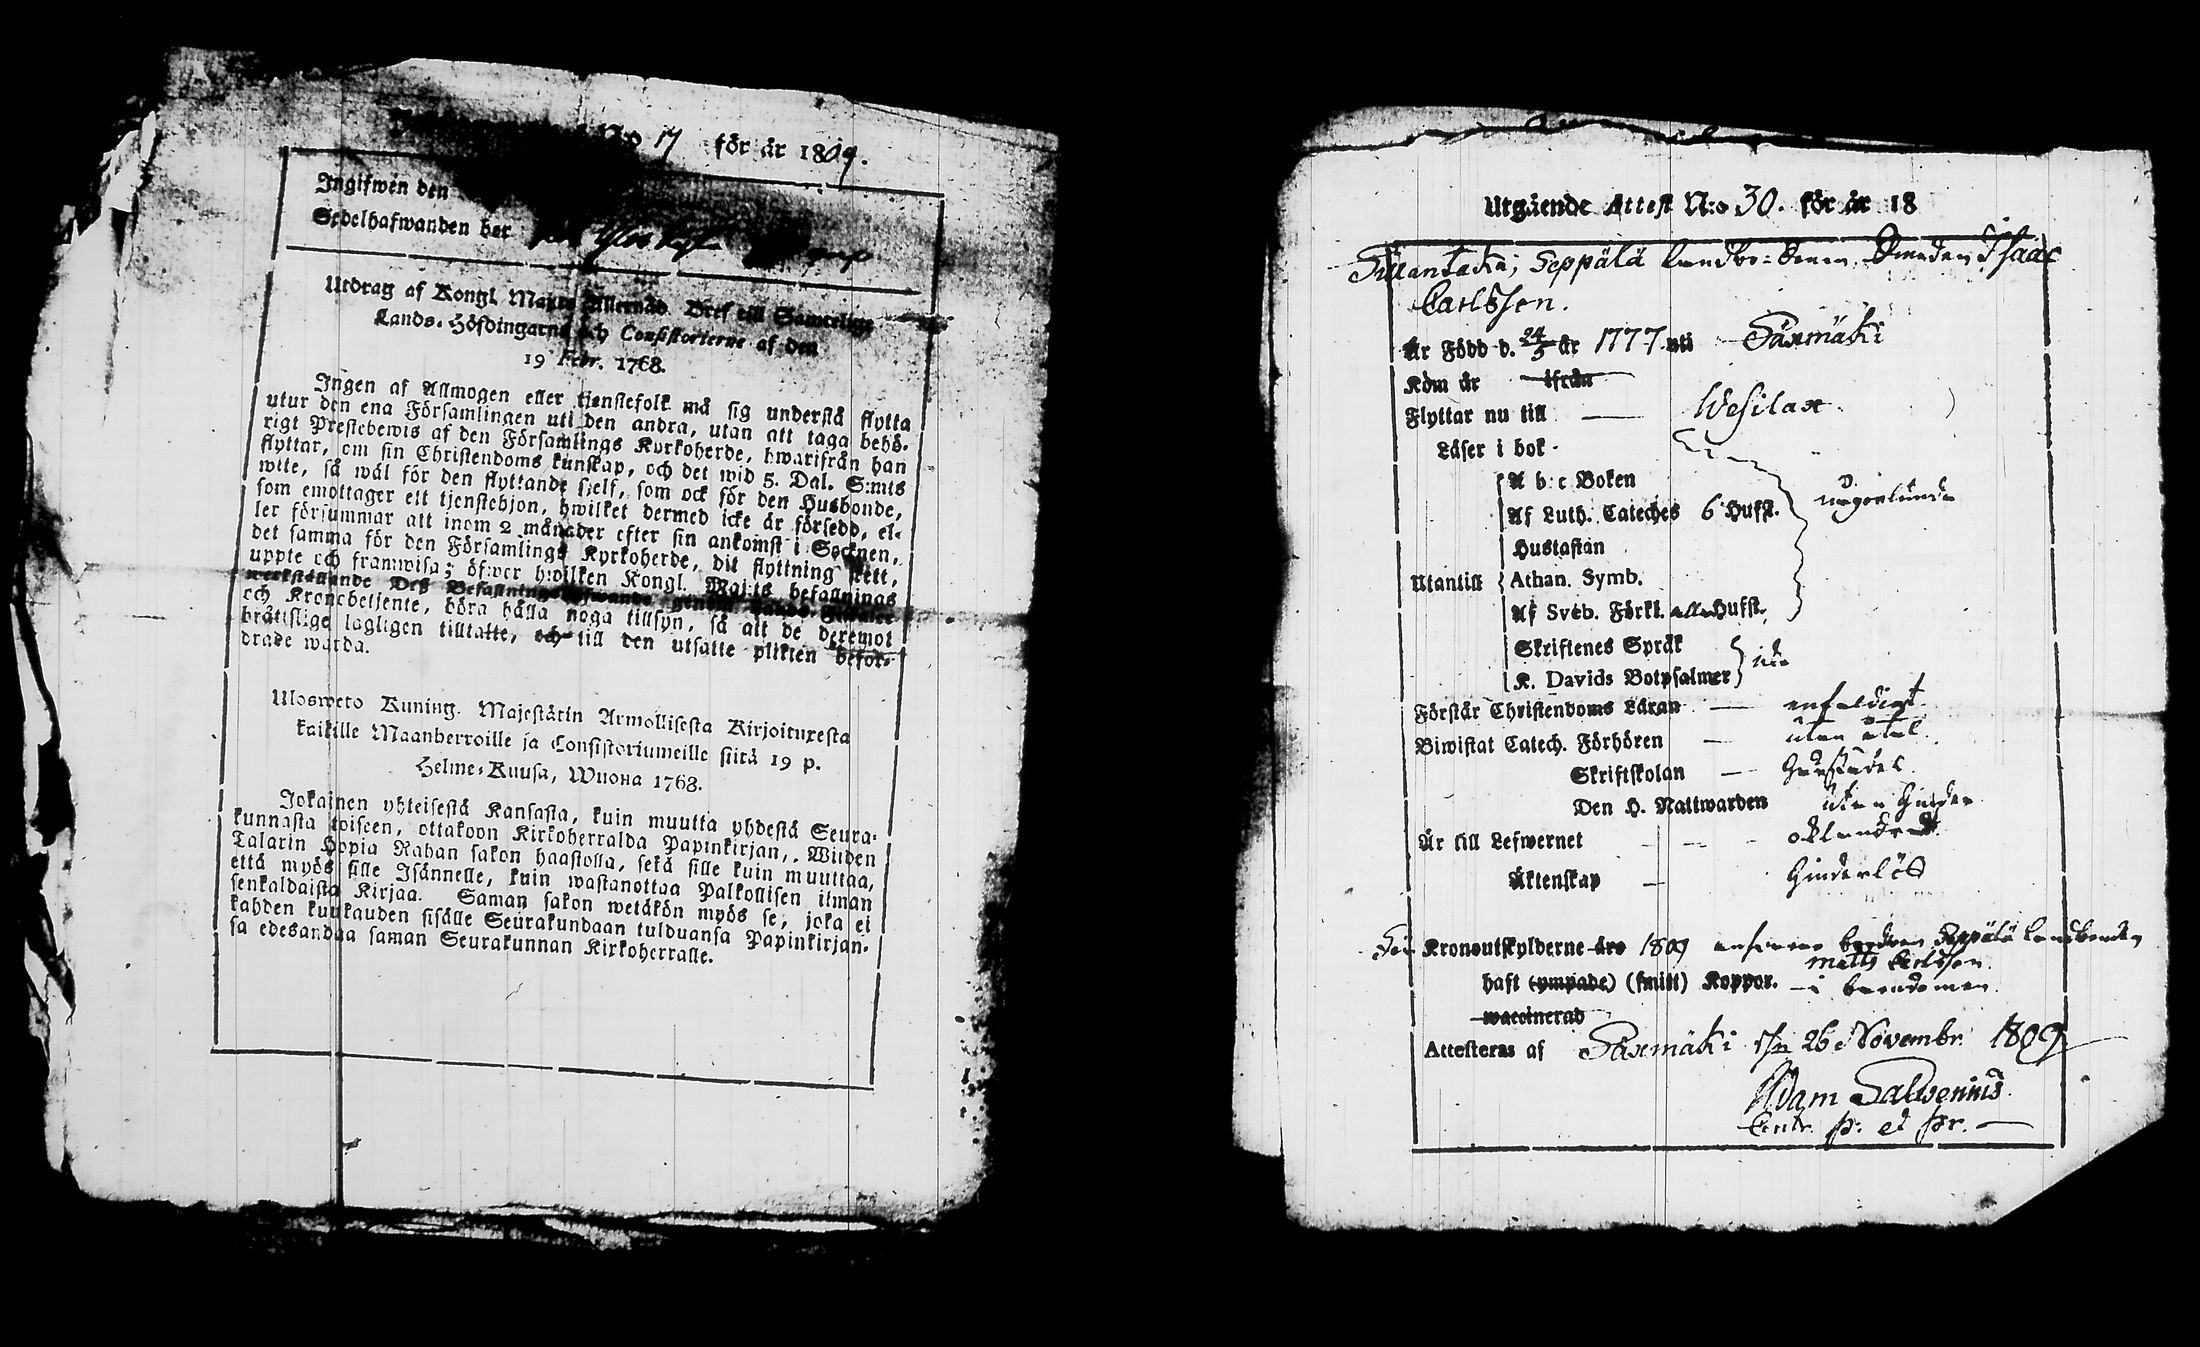 N:o 17 för år 1809.
Ingifwen den
Sedelhafwanden ber
Utdrag af Kongl. Maj:ts Allernåd. Bref till Samtelige
Lands-Höfdingarne och Consistorierne af den
19 Febr. 1768.
Ingen af Allmogen eller tjenstefolk må sig understå flytta
utur den ena Församlingen uti den andra, utan att taga behö-
rigt Prestebewis af den Församlings Kyrkoherde, hwarifrån han
flyttar, om sin Christendoms kunskap, och det wid 5. Dal. S:mts
wite, så wäl för den flyttande sjelf, som ock för den Husbonde,
som emottager ett tjenstehjon, hwilket dermed icke är försedd, el-
ler försummar att inom 2 månader efter sin ankomst i Socknen,
det samma för den Församlings Kyrkoherde, dit flyttning skett,
uppte och framwisa; öfwer hwilken Kongl. Maj:ts befallnings
werkställande Deß Befallningshafwande genom Lands-Fiscaler
och Kronobetjente, böra hålla noga tillsyn, så att de deremot
bråttslige lagligen tilltalte, och till den utsatte plikten befor-
drade warda.
Ulosweto Kuning. Majestätin Armollisesta Kirjoituxesta
kaikille Maanherroille ja Consistoriumeille siitä 19 p.
Helme-Kuusa, Wuona 1768.
Jokainen yhteisestä Kansasta, kuin muutta yhdestä Seura-
kunnasta toiseen, ottakoon Kirkoherralda Papinkirjan, Wiiden
Talarin Hopia Rahan sakon haastolla, sekä sille kuin muuttaa,
että myös sille Isännelle, kuin wastanottaa Palkollisen ilman
senkaldaista Kirjaa. Saman sakon wetäkön myös se, joka ei
kahden kuukauden sisälle Seurakundaan tulduansa Papinkirjan-
sa edesandaa saman Seurakunnan Kirkoherralle.
Utgående Attest N:o 30. för år 18
Sillantaka, Seppälä landbo-Sonen, Drenden Isaac
Carlsson.
Är Född d. 24/5 år 1777 uti Säxmäki
Kom år ifrån
Flyttar nu till Wesilax
Läser i bok
A b c Boken
Af Luth. Cateches 6 Hufst.
någorlunda
Hustaflan
Utantill
Athan. Symb.
Af Sveb. Förkl. alla Hufst.
Skriftenes Språk
K. Davids Botpsalmer
Förstår Christendoms Läran enfaldigt
Biwistat Catech. Förhören
Skriftskolan
Den H. Nattwarden utan hinder
Är till Lefwernet oklandrad
Äktenskap hinderlös
För Kronoutskylderne åro 1809 ansvarar brodren Seppälä landbonden
Matts Carlsson
haft (ympade) (smitt) Koppor. i barndomen
waccinerad
Attesteras af Säxmäki d. 26 Novembr. 1809
Adam Salvenius
p: et pr.